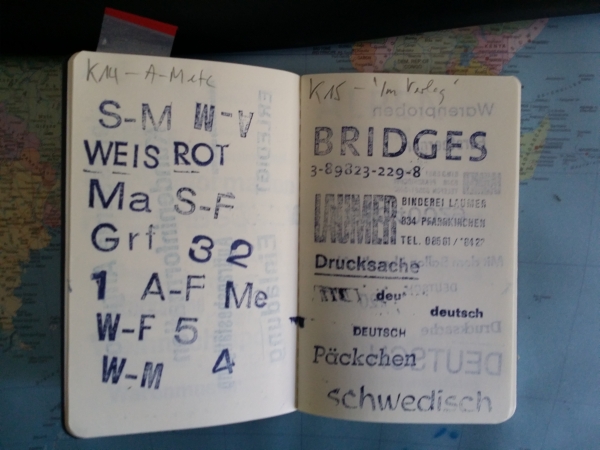 K14 - A-M etc
S-M W-V
WEIS ROT
Ma S-F
Grf 3 2
1 A-F Me
W-F 5
W-M 4
K15 - "Im Verlag"
Warenproben
BRIDGES
3-89823-229-8
LAUMER BINDEREI LAUMER
834 PFARRKIRCHEN
TEL. 08561/
Drucksache
deutsch
DEUTSCH
Päckchen
DEUTSCH
schwedisch